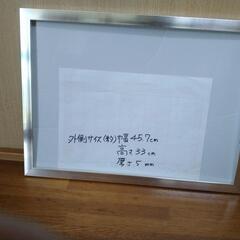 外側サイズ(約)巾45.7cm
高さ33cm
厚さ5mm